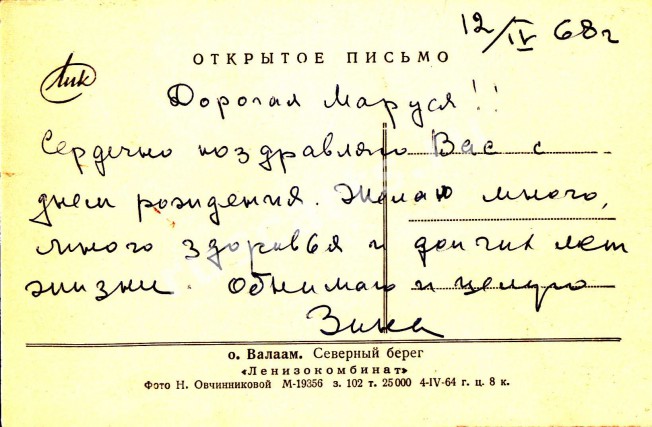 12/IV 68г
ОТКРЫТОЕ ПИСЬМО
Лик
Дорогая Маруся!!
Сердечно поздравляю Вас с
днем рождения. Желаю много,
много здоровья и долгих лет
жизни. Обнимаю и целую
Зина
о. Валаам. Северный берег
«Ленизокомбинат»
Фото Н. Овчинниковой М-19356 з. 102 т. 25000 4-IV-64 г. ц. 8 к.